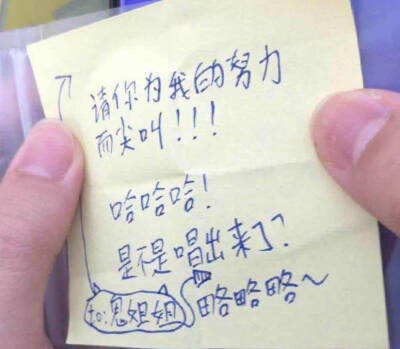 请你为我的努力
而尖叫!!!
哈哈哈!
是不是唱出来了?
略略略~
to:鬼姐姐